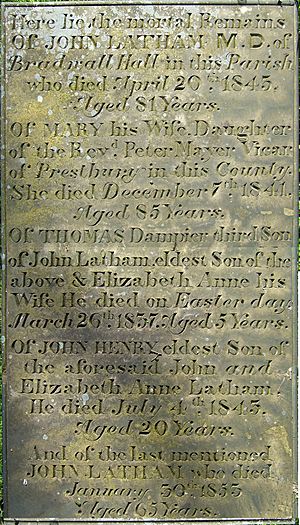 Here lie the mortal Remains
Of JOHN LATHAM M.D. of
Bradwall Hall in this Parish
who died April 20th 1843.
Aged 81 Years.
Of MARY his Wife, Daughter
of the Revd. Peter Mayer Vicar
of Prestbury in this County.
She died December 7th 1841.
Aged 85 Years.
Of THOMAS Dampier third Son
of John Latham, eldest Son of the
above & Elizabeth Anne his
Wife He died on Easter day
March 26th 1837. Aged 5 Years.
Of JOHN HENRY eldest Son of
the aforesaid John and
Elizabeth Anne Latham.
He died July 4th 1843.
Aged 20 Years.
And of the last mentioned
JOHN LATHAM who died
January 30th 1853
Aged 65 Years.